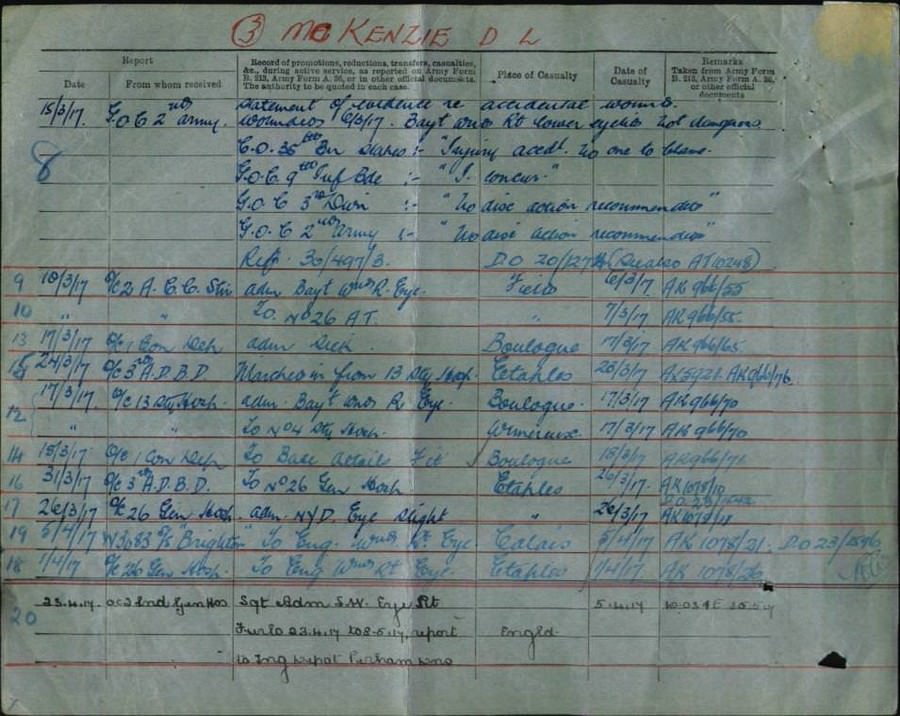 ③ McKENZIE D L
Report
Record of promotions, reductions, transfers, casualties, &c., during active service, as reported on Army Form B. 213, Army Form A. 36, or in other official documents. The authority to be quoted in each case.
Place of Casualty
Date of Casualty
Remarks Taken from Army Form B. 213, Army Form A. 36, or other official documents
Date From whom received
Statement of evidence re accidental wounds.
15/3/17. G.O.C 2nd Army. wounded 6/3/17. Bayt wnd Rt lower eyelid not dangerous
8 C.O. 35th Bn states :- "Injury acedt. No one to blame.
G.O.C 9th Inf Bde :- "I concur"
G.O.C 3rd Divn :- "No disc action recommended"
G.O.C 2nd Army :- "No disc action recommended"
Refs. 30/497/3. D.O 20/127
9 10/3/17 O/C 2 A.C.C. Stn adm Bayt wnd R. Eye. 6/3/17. AK 966/55
10 " " To No 26 A.T. " 7/3/17 AK 966/55
13 17/3/17 O/C 1 Con Dep adm Sick Boulogne 17/3/17 AK 966/65
15 24/3/17 O/C 3rd A.D.B.D. Marched in from 13 Sty Hosp. Etaples 23/3/17 AK966/76
12 17/3/17 O/C 13 Sty Hosp. adm. Bayt wnd R Eye. Boulogne. 17/3/17 AK 966/70
" " To No 4 Sty Hosp. Wimereux 17/3/17 AK 966/70
14 18/3/17 O/C 1 Con Dep To Base details Fit Boulogne 18/3/17 AK 966/71
16 31/3/17 O/C 3rd A.D.B.D. To No 26 Gen Hosp Etaples 26/3/17. AK 1078/10
17 26/3/17 O/C 26 Gen Hosp. adm. NYD. Eye Slight " 26/3/17 AK 1078/11
19 5/4/17 W3083 "Brighton" To Eng. wnd Rt Eye Calais 5/4/17 AK 1078/21. D.O 23/
18 1/4/17 O/C 26 Gen Hosp. To Eng wnd Rt Eye Etaples 1/4/17 AK 1078/26
20 23.4.17 Gen Hos Sgt Adm S.W. Eye Rt 5.4.17
Furlo 23.4.17 to 8-5-17, report Engld.
to Trg Depot Perham Dns